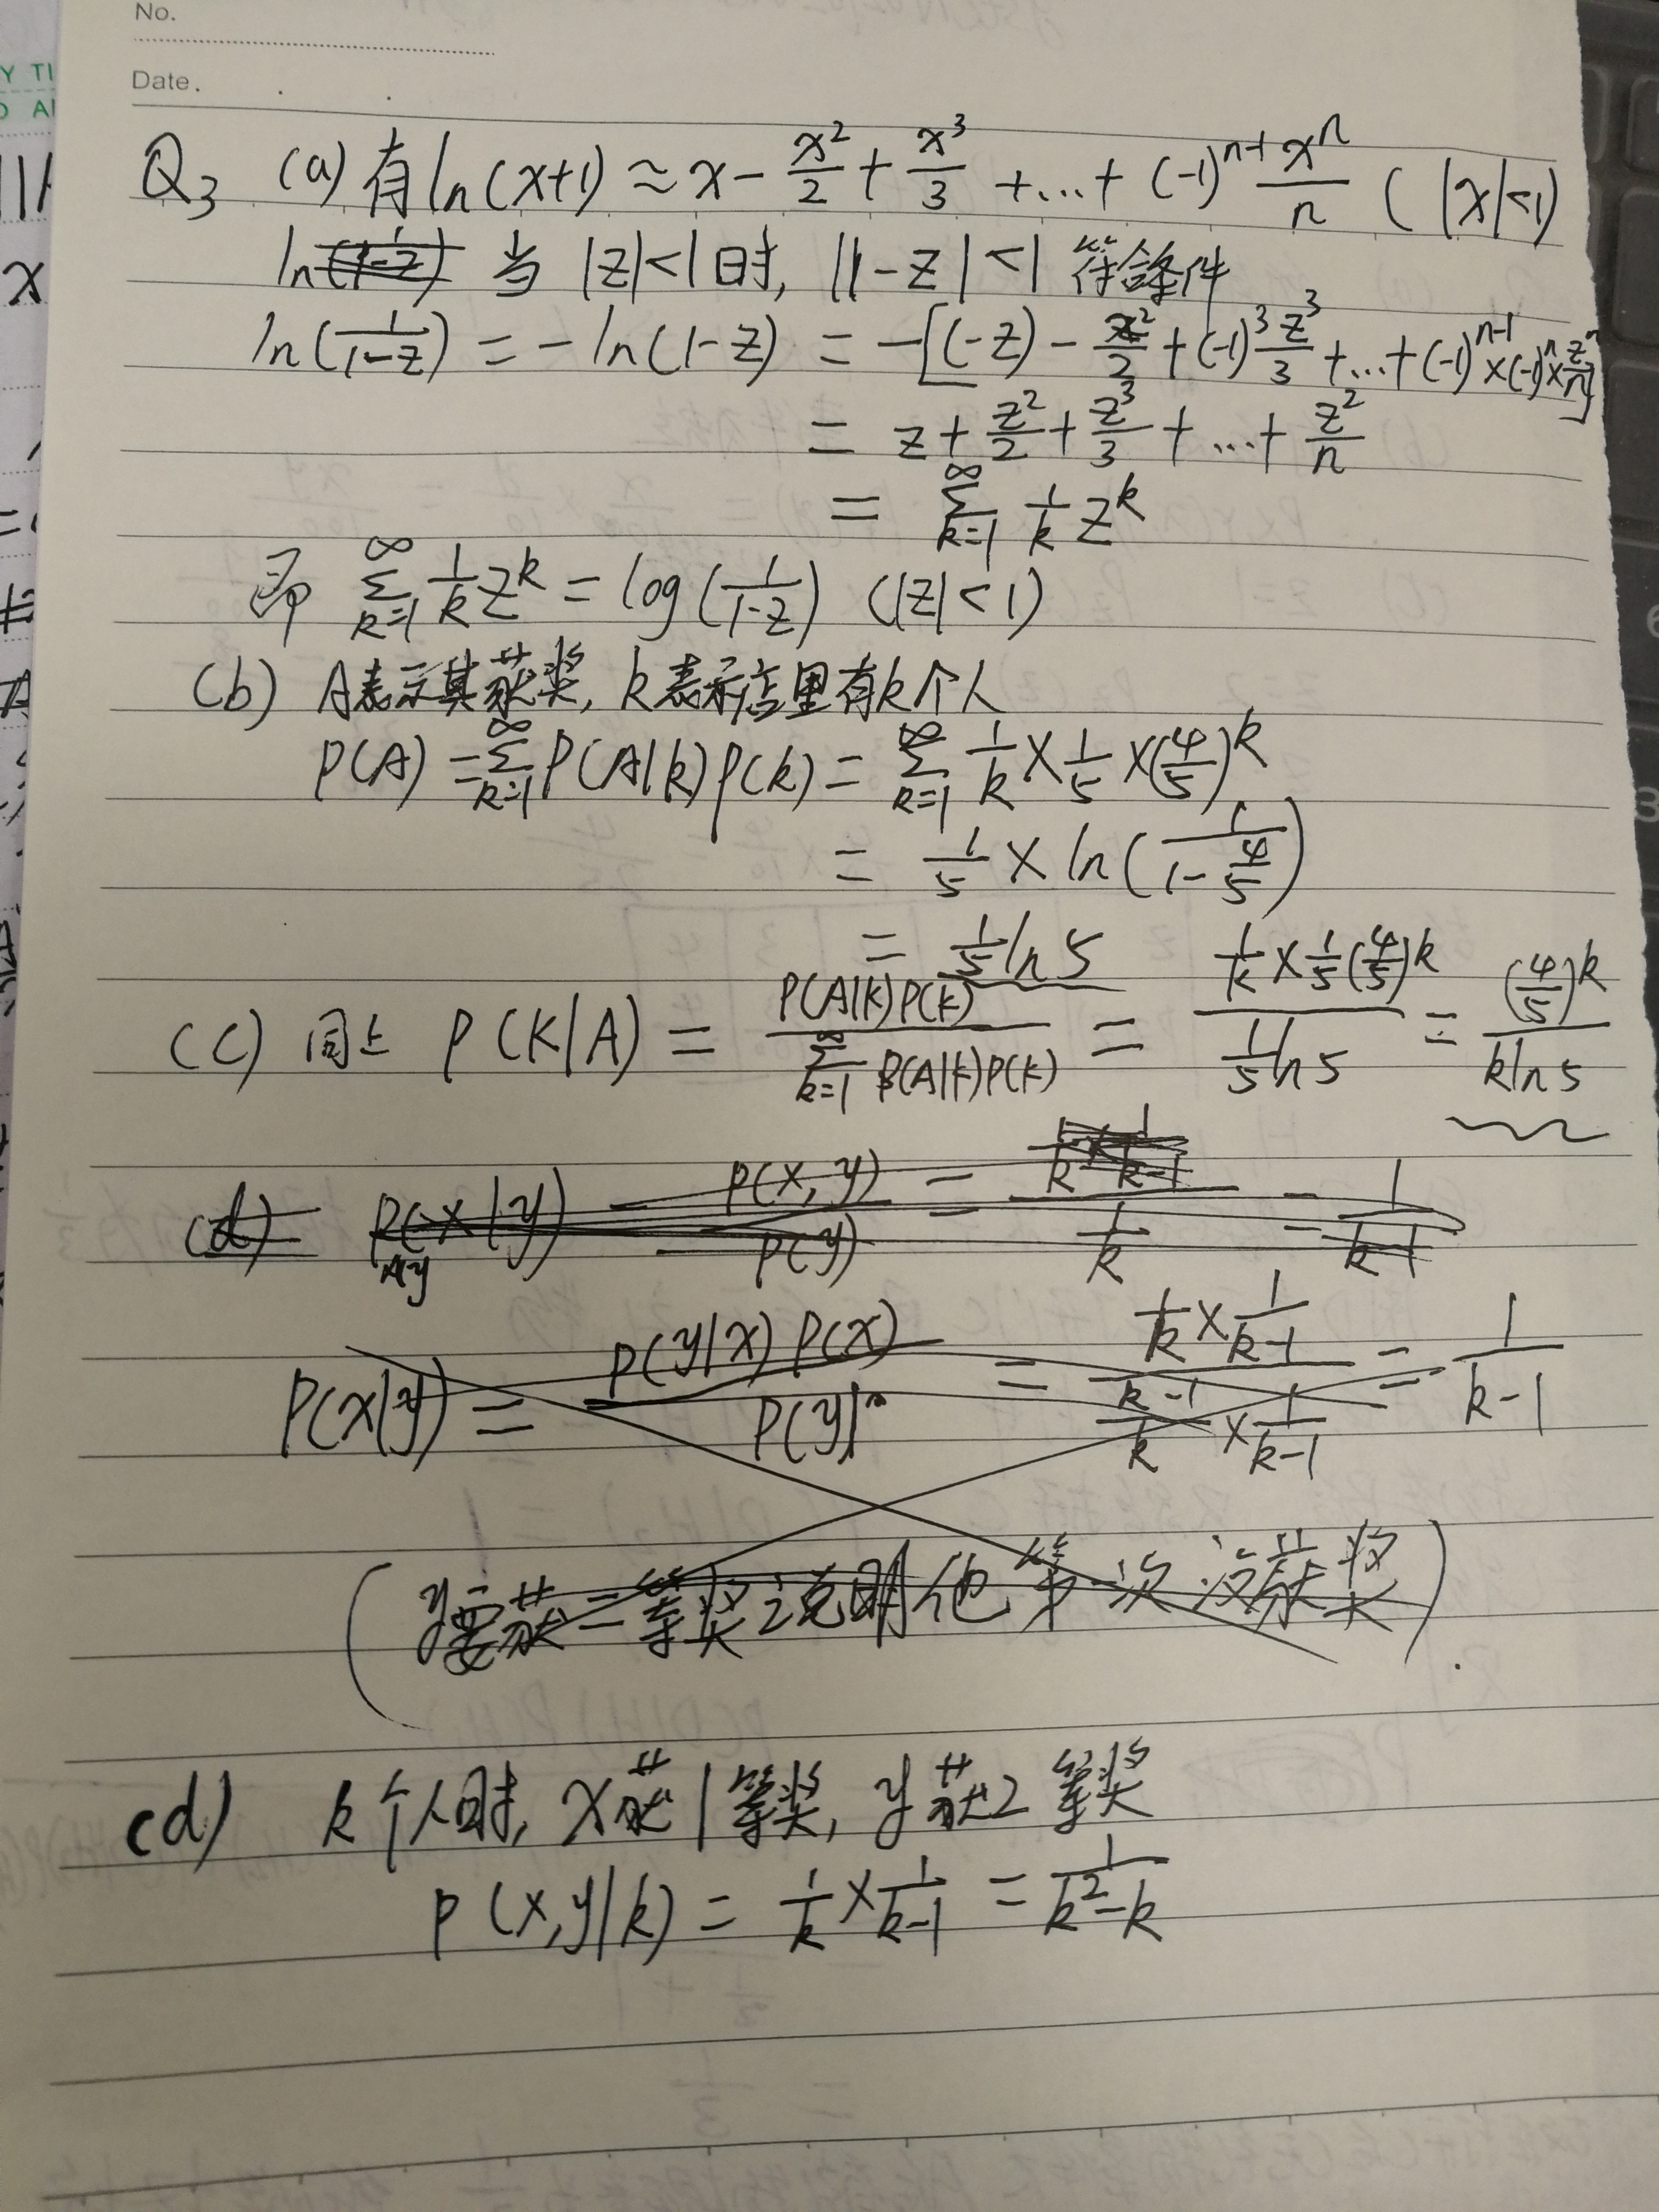 No.
Date.
Q3 (a) 有 ln(x+1) ≈ x - x²/2 + x³/3 + ... + (-1)ⁿ⁻¹ xⁿ/n (|x|<1)
ln(1/(1-z)) 当 |z|<1时, |1-z|<1 符合条件
ln(1/(1-z)) = -ln(1-z) = -[(-z) - z²/2 + (-1)³ z³/3 + ... + (-1)ⁿ⁻¹ × (-1)ⁿ × zⁿ/n]
= z + z²/2 + z³/3 + ... + z²/n
= ∑_{k=1}^{∞} 1/k z^k
即 ∑_{k=1}^{∞} 1/k z^k = log(1/(1-z)) (|z|<1)
(b) A表示其获奖, k表示店里有k个人
P(A) = ∑_{k=1}^{∞} P(A|k)P(k) = ∑_{k=1}^{∞} 1/k × 1/5 × (4/5)^k
= 1/5 × ln(1/(1-4/5))
= 1/5 ln5
(c) 同上 P(K|A) = P(A|k)P(k) / ∑_{k=1}^{∞} P(A|k)P(k) = (1/k × 1/5 (4/5)^k) / (1/5 ln5) = (4/5)^k / (k ln5)
(d) P(x|y) = P(x,y)/P(y) = (1/k × 1/(k-1)) / (1/k) = 1/(k-1)
P(x|y) = P(y|x)P(x) / P(y) = (1/k × 1/(k-1)) / ((k-1)/k × 1/(k-1)) = 1/(k-1)
(y要获二等奖说明他第一次没获奖)
(d) k个人时, x获1等奖, y获2等奖
P(x,y|k) = 1/k × 1/(k-1) = 1/(k²-k)